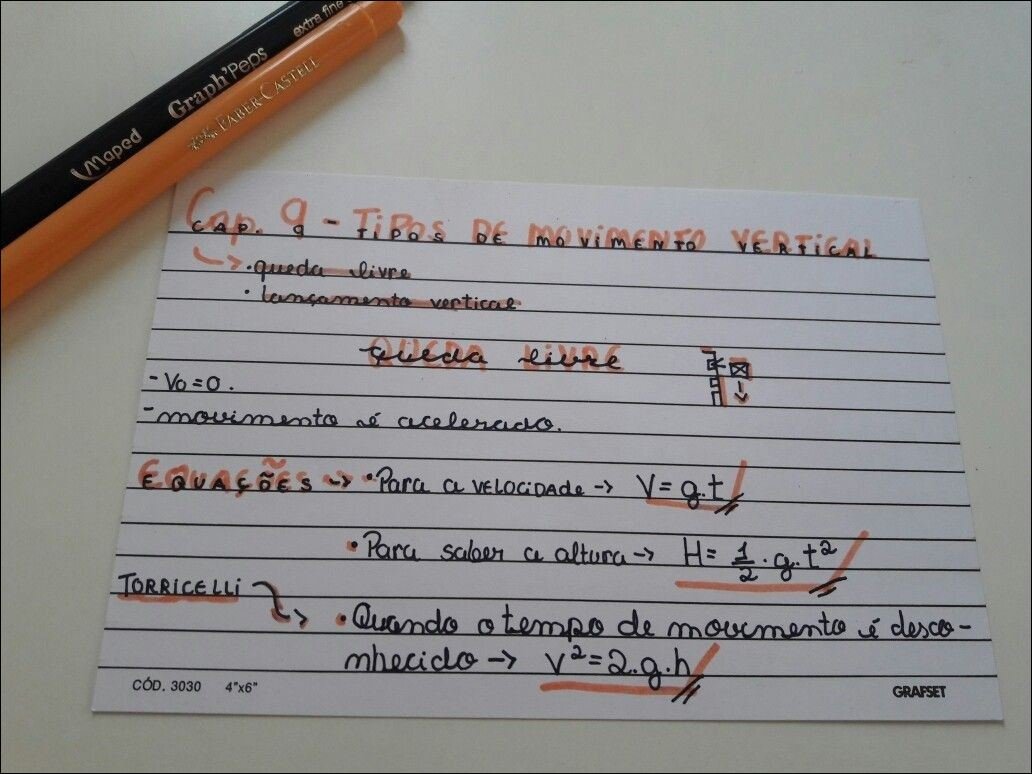 Maped Graph'Peps extra fine
FABER-CASTELL
Cap. 9 - TIPOS DE MOVIMENTO VERTICAL
• queda livre
• lançamento vertical
queda livre
- V0 = 0.
- movimento é acelerado.
EQUAÇÕES → • Para a VELOCIDADE → V = g.t
• Para saber a altura → H = 1/2 . g.t²
TORRICELLI
• Quando o tempo de movimento é desco-
nhecido → V² = 2.g.h
CÓD. 3030 4"x6" GRAFSET